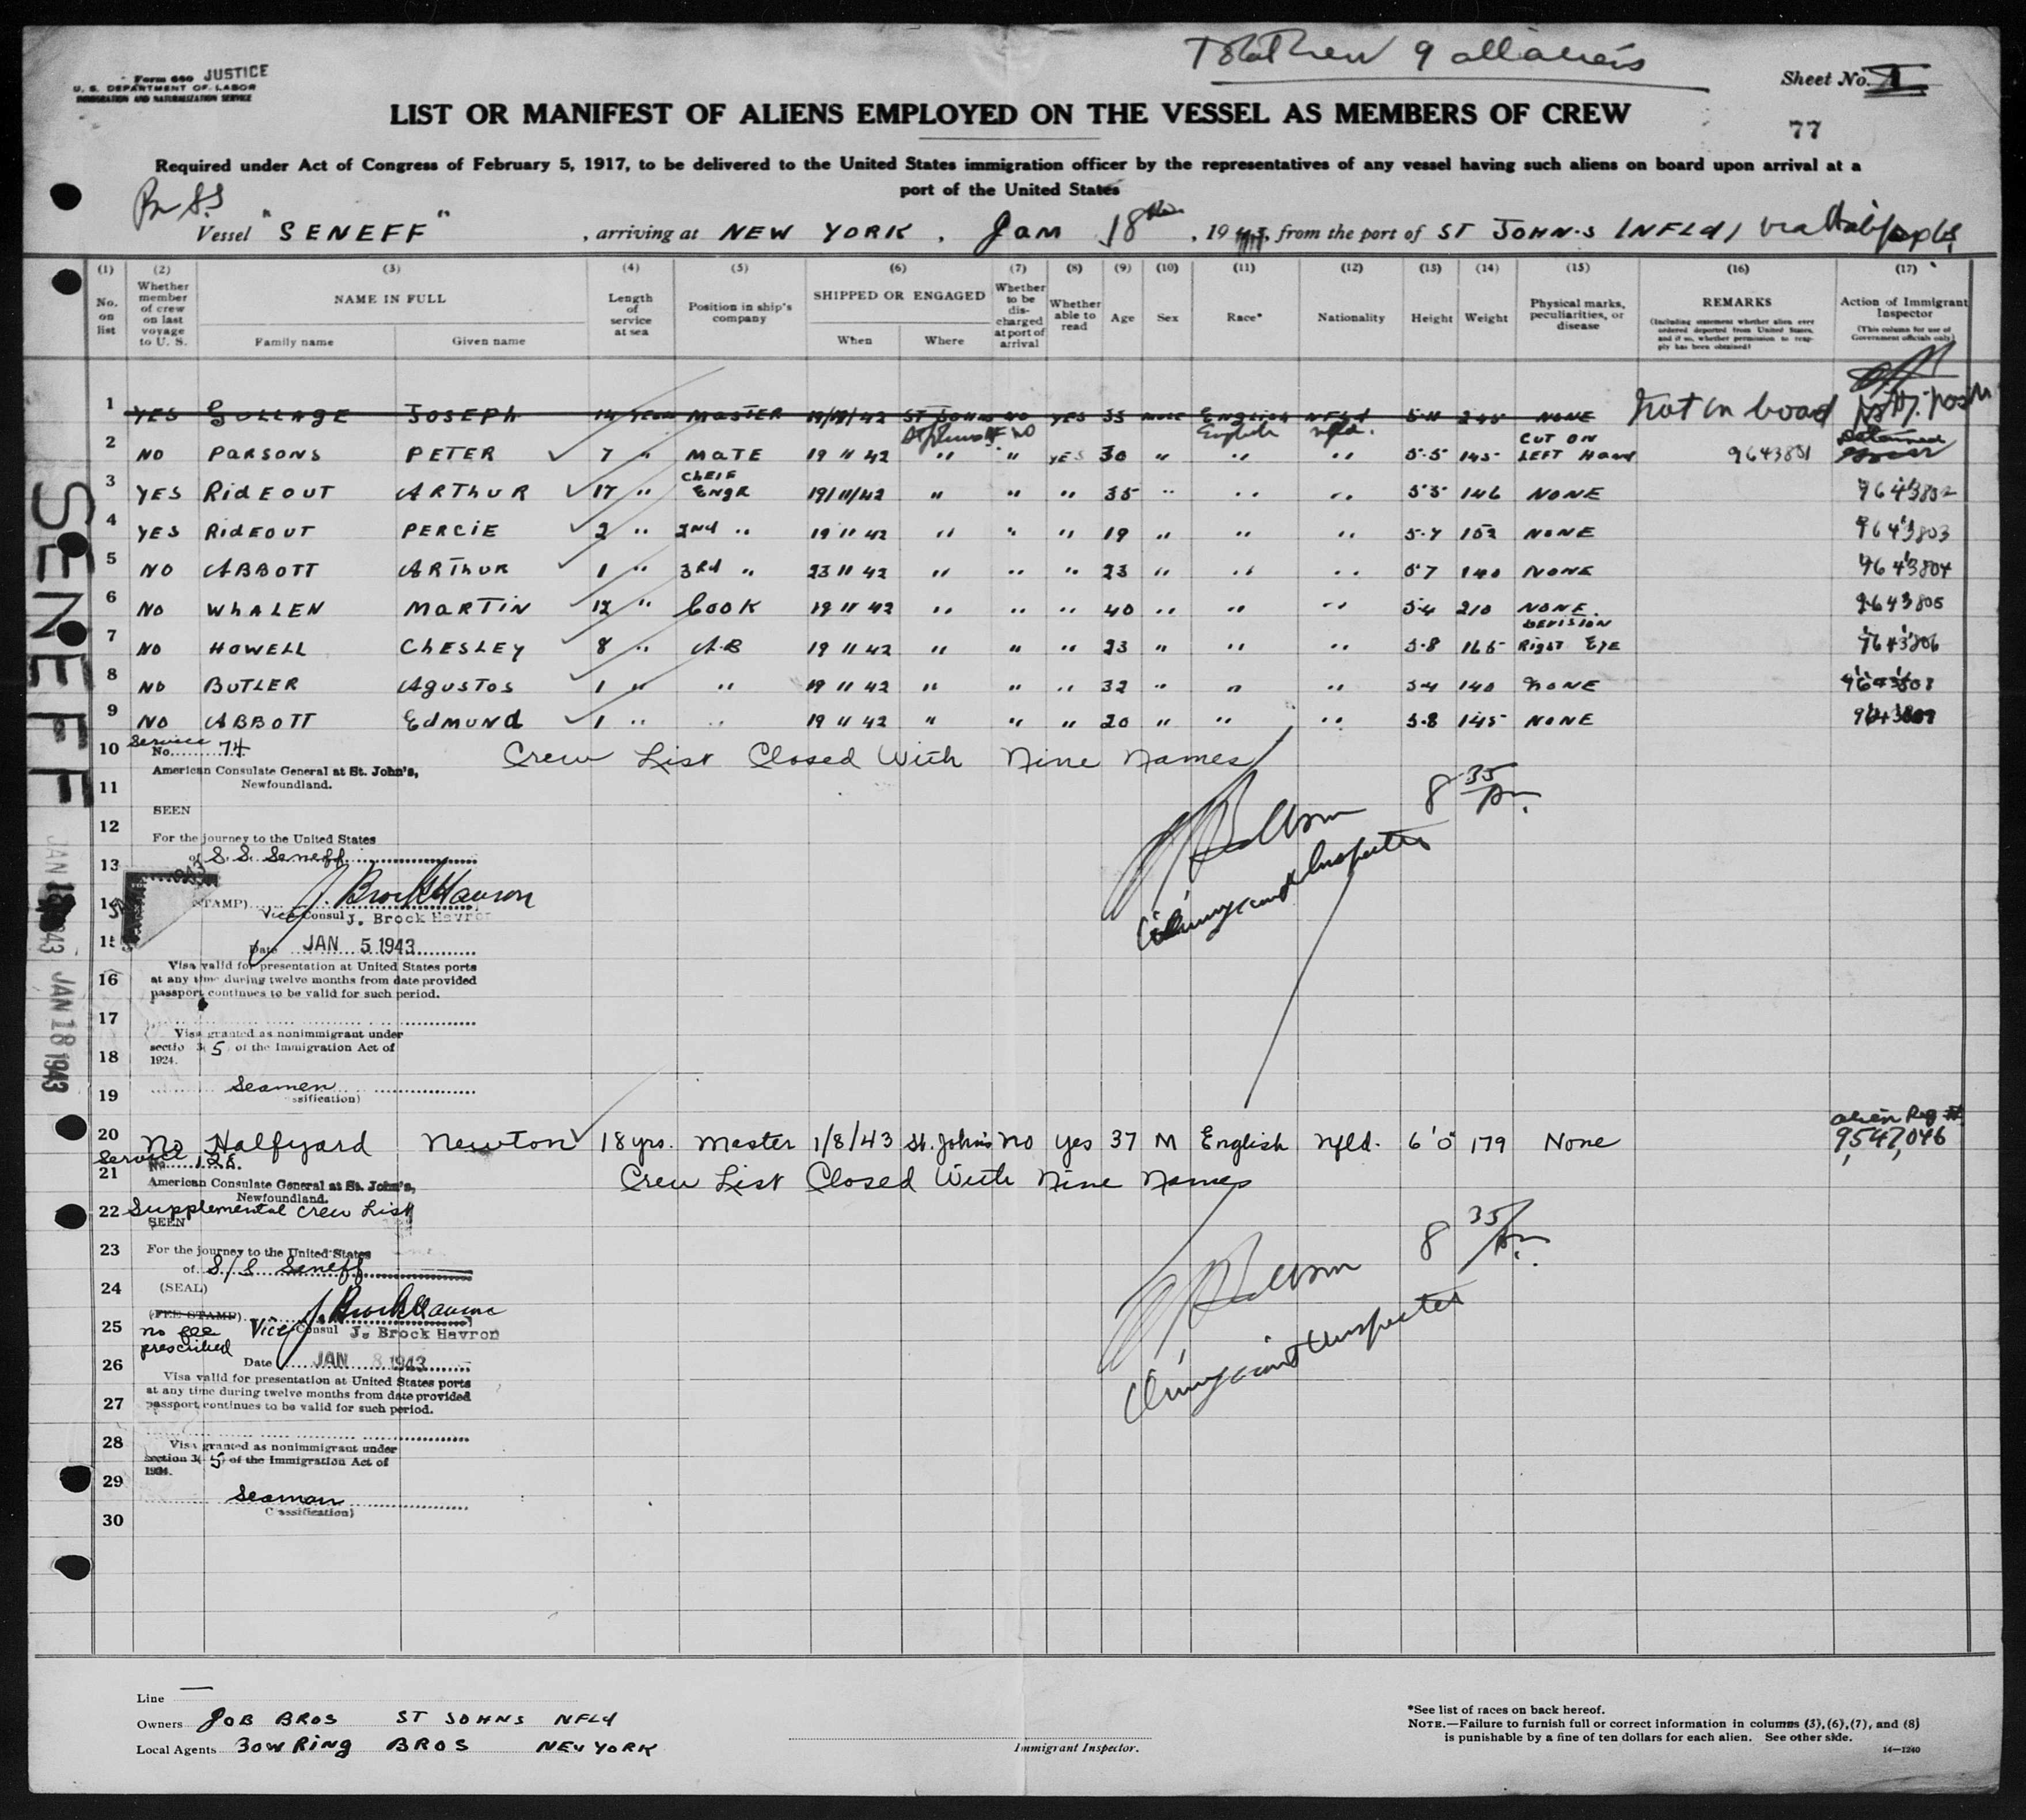 Form 680 JUSTICE
U. S. DEPARTMENT OF LABOR
IMMIGRATION AND NATURALIZATION SERVICE
9
Sheet No.
LIST OR MANIFEST OF ALIENS EMPLOYED ON THE VESSEL AS MEMBERS OF CREW
77
Required under Act of Congress of February 5, 1917, to be delivered to the United States immigration officer by the representatives of any vessel having such aliens on board upon arrival at a
port of the United States
Br SS
Vessel "SENEFF", arriving at NEW YORK, Jan 18th, 1943, from the port of ST JOHN·S (NFLd) via Halifax
(1) (2) (3) (4) (5) (6) (7) (8) (9) (10) (11) (12) (13) (14) (15) (16) (17)
No. on list
Whether member of crew on last voyage to U. S.
NAME IN FULL
Family name Given name
Length of service at sea
Position in ship's company
SHIPPED OR ENGAGED
When Where
Whether to be discharged at port of arrival
Whether able to read
Age
Sex
Race*
Nationality
Height
Weight
Physical marks, peculiarities, or disease
REMARKS
(Including statement whether alien ever ordered deported from United States, and if so, whether permission to reapply has been obtained)
Action of Immigrant Inspector
(This column for use of Government officials only)
1 YES GULLAGE JOSEPH 14 YEARS MASTER 19/11/42 ST JOHNS NO YES 35 MALE ENGLISH NFLd 5·11 245 NONE Not on board
St Johns NF NO English nfld.
2 NO PARSONS PETER 7 " MATE 19 11 42 " " YES 30 " " " 5·5 145 CUT ON LEFT Hand 9643801 Detained
3 YES RIDEOUT ARTHUR 17 " CHEIF ENGR 19/11/42 " " " 35 " " " 5'5 146 NONE 9643802
4 YES RIDEOUT PERCIE 2 " 2nd " 19 11 42 " " " 19 " " " 5·7 152 NONE 9643803
5 NO ABBOTT ARTHUR 1 " 3Rd " 23 11 42 " " " 23 " " " 5'7 140 NONE 9643804
6 NO WHALEN MARTIN 12 " COOK 19 11 42 " " " 40 " " " 5·4 210 NONE. 9643805
7 NO HOWELL CHESLEY 8 " A·B 19 11 42 " " " 23 " " " 5·8 165 DEVISION RIGHT EYE 9643806
8 NO BUTLER AGUSTOS 1 " " 19 11 42 " " " 32 " " " 5·4 140 NONE 9643808
9 NO ABBOTT EDMUND 1 " " 19 11 42 " " " 20 " " " 5·8 145 NONE 9643809
10 Service No. 74 Crew List Closed With Nine Names
American Consulate General at St. John's,
11 Newfoundland.
8 35 Am.
SEEN
12
For the journey to the United States
13 of S. S. Seneff
Immigrant Inspector
14 STAMP) J. Brock Havron
Vice Consul J. Brock Havron
15 Date JAN 5 1943
Visa valid for presentation at United States ports
16 at any time during twelve months from date provided
passport continues to be valid for such period.
17
Visa granted as nonimmigrant under
section 3( 5 ) of the Immigration Act of
18 1924.
19 Seamen
(Classification)
Alien Reg #
20 No Halfyard Newton 18 yrs. Master 1/8/43 St. John's No Yes 37 M English Nfld. 6'0" 179 None 9,547,046
Service No. 128.
21 American Consulate General at St. John's, Crew List Closed With Nine Names
Newfoundland.
22 Supplemental Crew List
SEEN
8 35 Am.
23 For the journey to the United States
of S/S Seneff
24 (SEAL)
(FEE STAMP) J. Brock Havron
25 no fee prescribed Vice Consul J. Brock Havron
Immigrant Inspector
26 Date JAN 8 1943
Visa valid for presentation at United States ports
at any time during twelve months from date provided
27 passport continues to be valid for such period.
28 Visa granted as nonimmigrant under
section 3( 5 ) of the Immigration Act of
1924.
29 Seaman
(Classification)
30
SENEFF
JAN 18 1943
JAN 18 1943
Line —
Owners JOB BROS ST JOHNS NFLd
Local Agents BOWRING BROS NEW YORK
Immigrant Inspector.
*See list of races on back hereof.
NOTE.—Failure to furnish full or correct information in columns (3), (6), (7), and (8)
is punishable by a fine of ten dollars for each alien. See other side.
14—1240